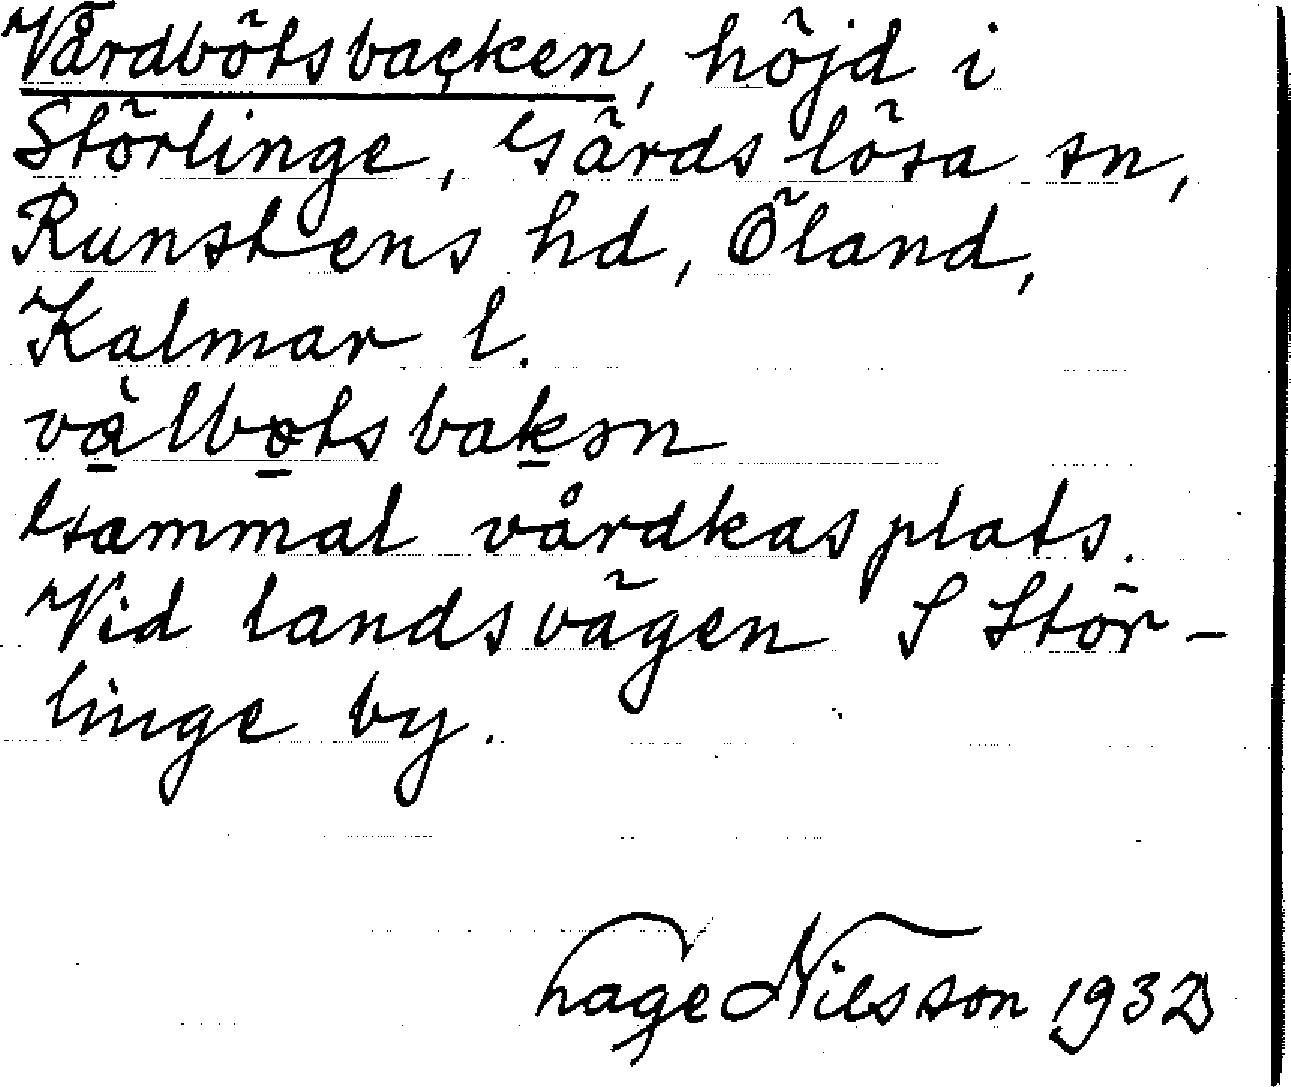 Vårdbötsbacken, höjd i
Störlinge, Gärdslösa sn,
Runstens hd, Öland,
Kalmar l.
vålbøtsbakən
Gammal vårdkasplats.
Vid landsvägen S Stör-
linge by.
Hage Nilsson 1932